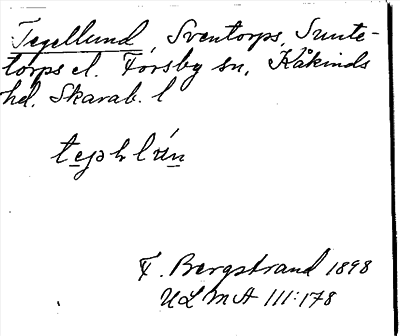 Tegellund, Sventorps, Sunte-
torps el. Forsby sn, Kåkinds
hd. Skarab. l
F. Bergstrand 1898
ULMA 111:178